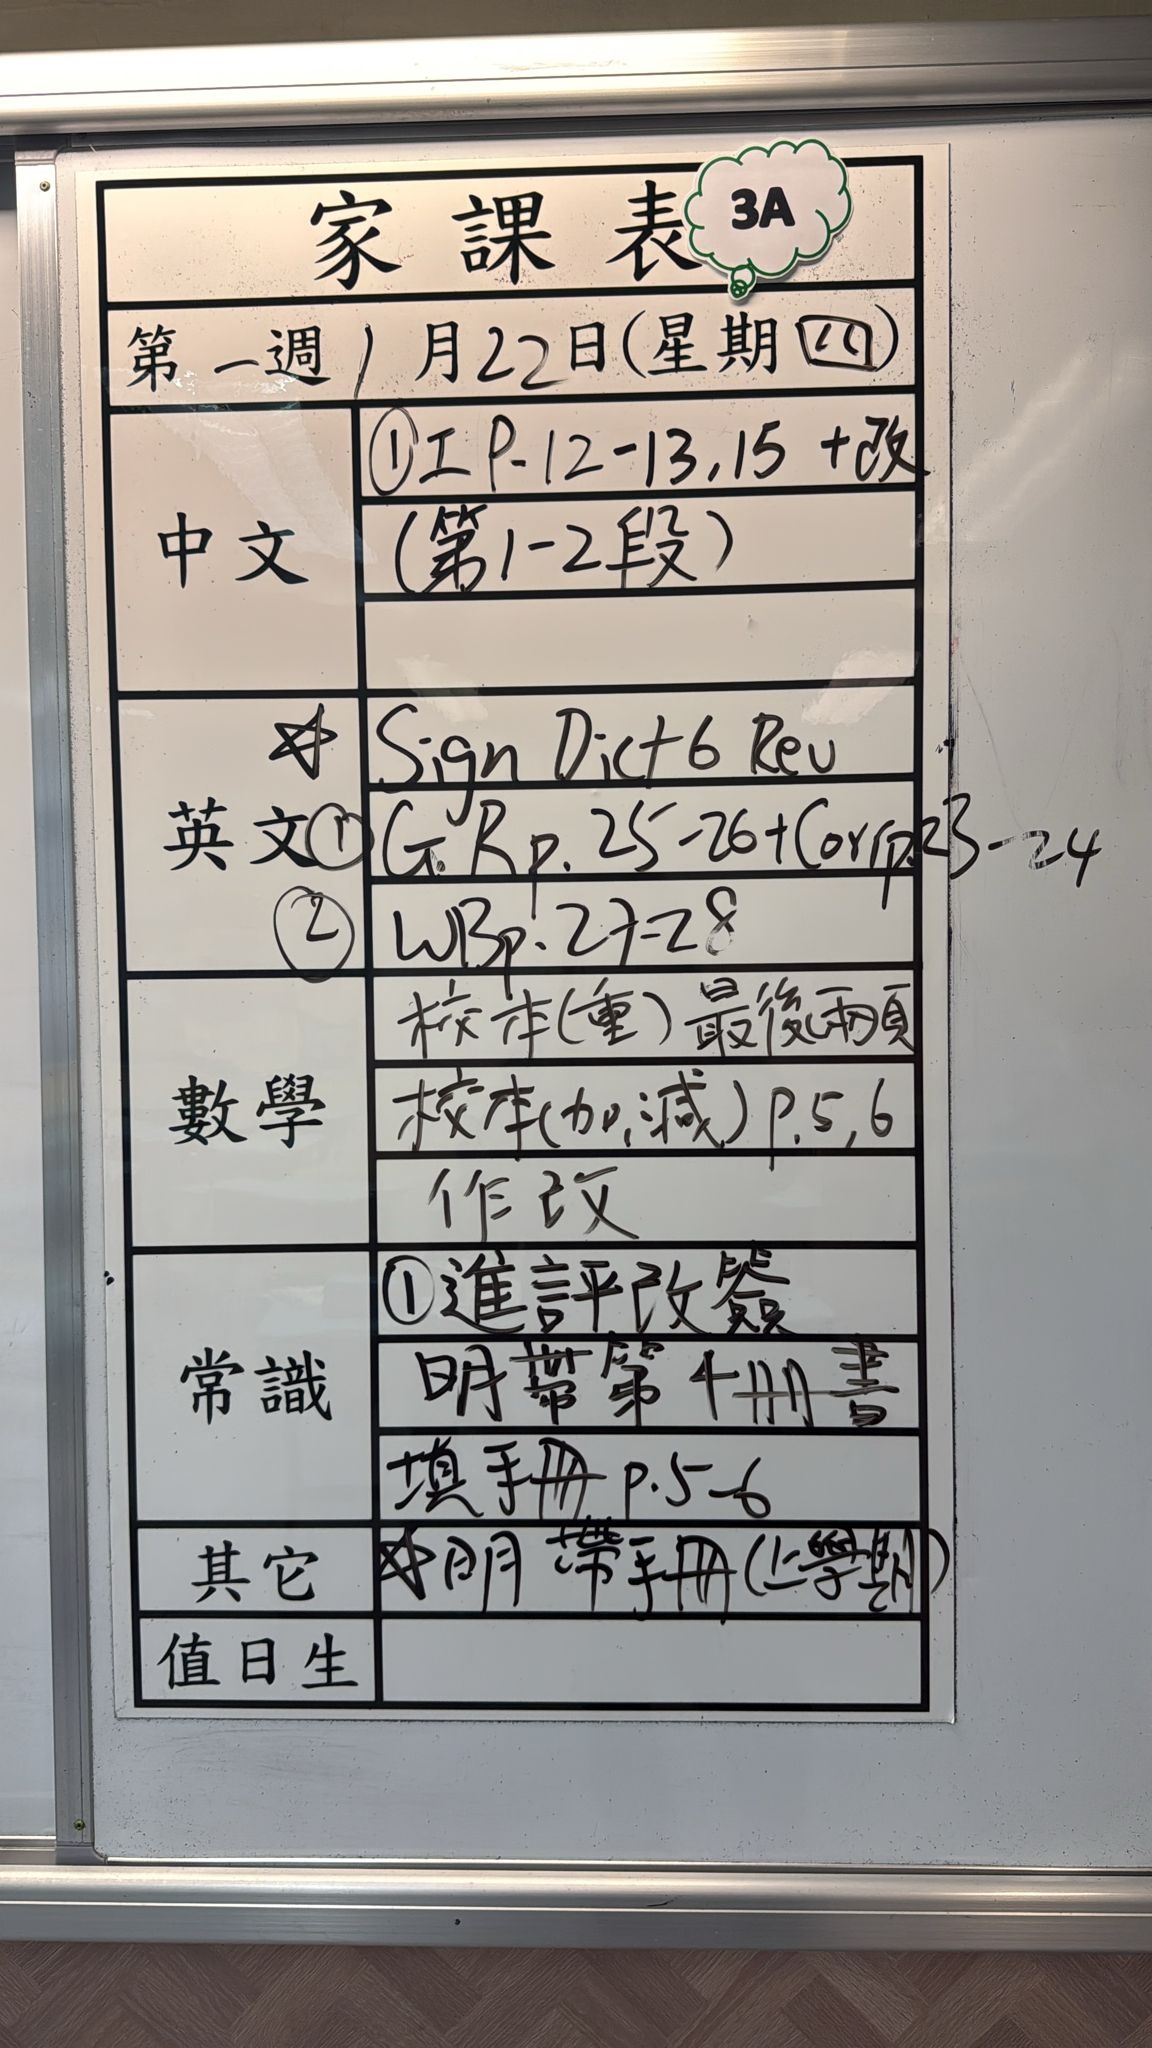 家課表 3A
第一週 1月22日(星期四)
中文
①工P.12-13,15 +改
(第1-2段)
英文
☆ Sign Dict 6 Rev
① G.R p.25-26+Corr p.23-24
② WB p.27-28
數學
校本(重)最後兩頁
校本(加,減)p.5,6
作改
常識
①進評改簽
明帶第4冊書
填手冊 p.5-6
其它
☆明帶手冊(上學期)
值日生